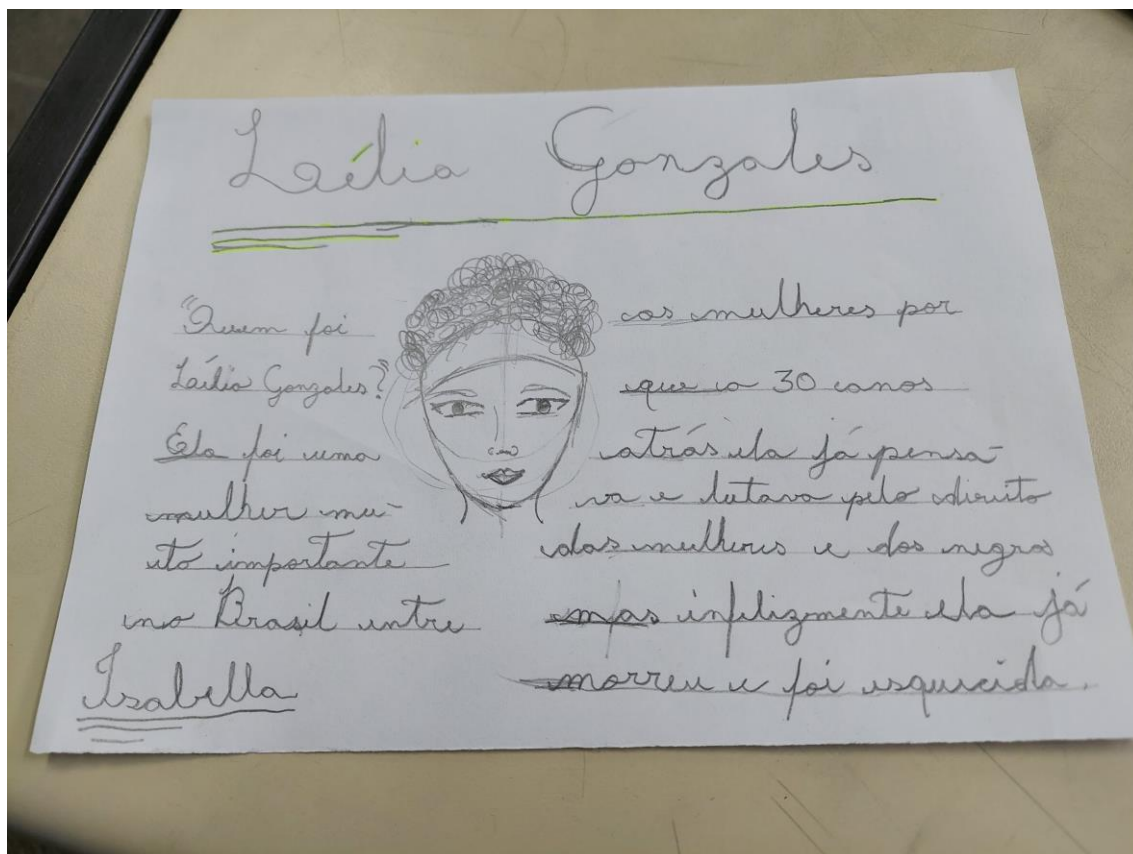 Laélia Gonzales
"Quem foi
Laélia Gonzales?"
Ela foi uma
mulher mu-
ito importante
no Brasil entre
as mulheres por
que a 30 anos
atrás ela já pensa-
va e lutava pelo direito
das mulheres e dos negros
mas infelizmente ela já
morreu e foi esquecida.
Isabella